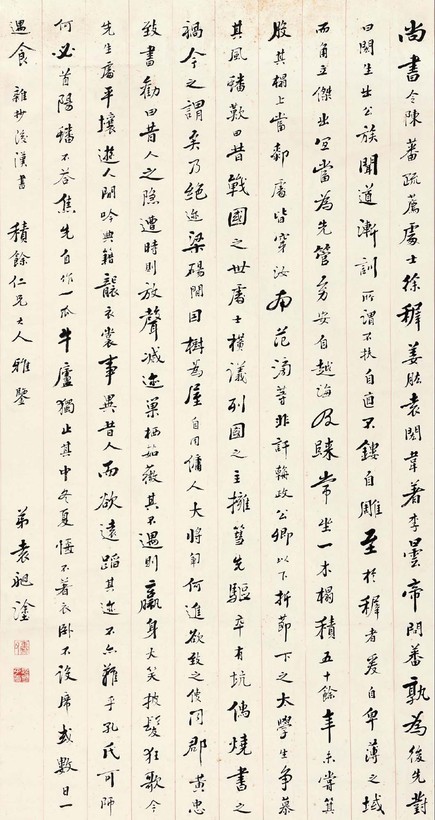 尚書令陳蕃疏薦處士徐穉姜肱袁閎韋著李曇帝問蕃孰為後先對
曰閎生出公族聞道漸訓所謂不扶自直不鏤自雕至於穉者爰自卑薄之域
而角立傑出宜當為先管寧安自越海及歸常坐一木榻積五十餘年未嘗箕
股其榻上當郗處皆穿汝南范滂等非訐朝政公卿以下折節下之太學生爭慕
其風蟠歎曰昔戰國之世處士橫議列國之主擁篲先驅卒有坑儒燒書之
禍今之謂矣乃絕迹梁碭間因樹為屋自同傭人大將軍何進欲致之使同郡黃忠
致書勸曰昔人之隱遭時則放聲滅迹巢棲茹薇其不遇則臝身大笑披髮狂歌今
先生處平壤遊人間吟典籍襲衣裳事異昔人而欲遠蹈其迹不亦難乎孔氏可師
何必首陽蟠不答焦先自作一瓜牛廬獨止其中冬夏恆不著衣臥不設席或數日一
過食 雜抄後漢書 積餘仁兄大人雅鑒 弟袁昶塗